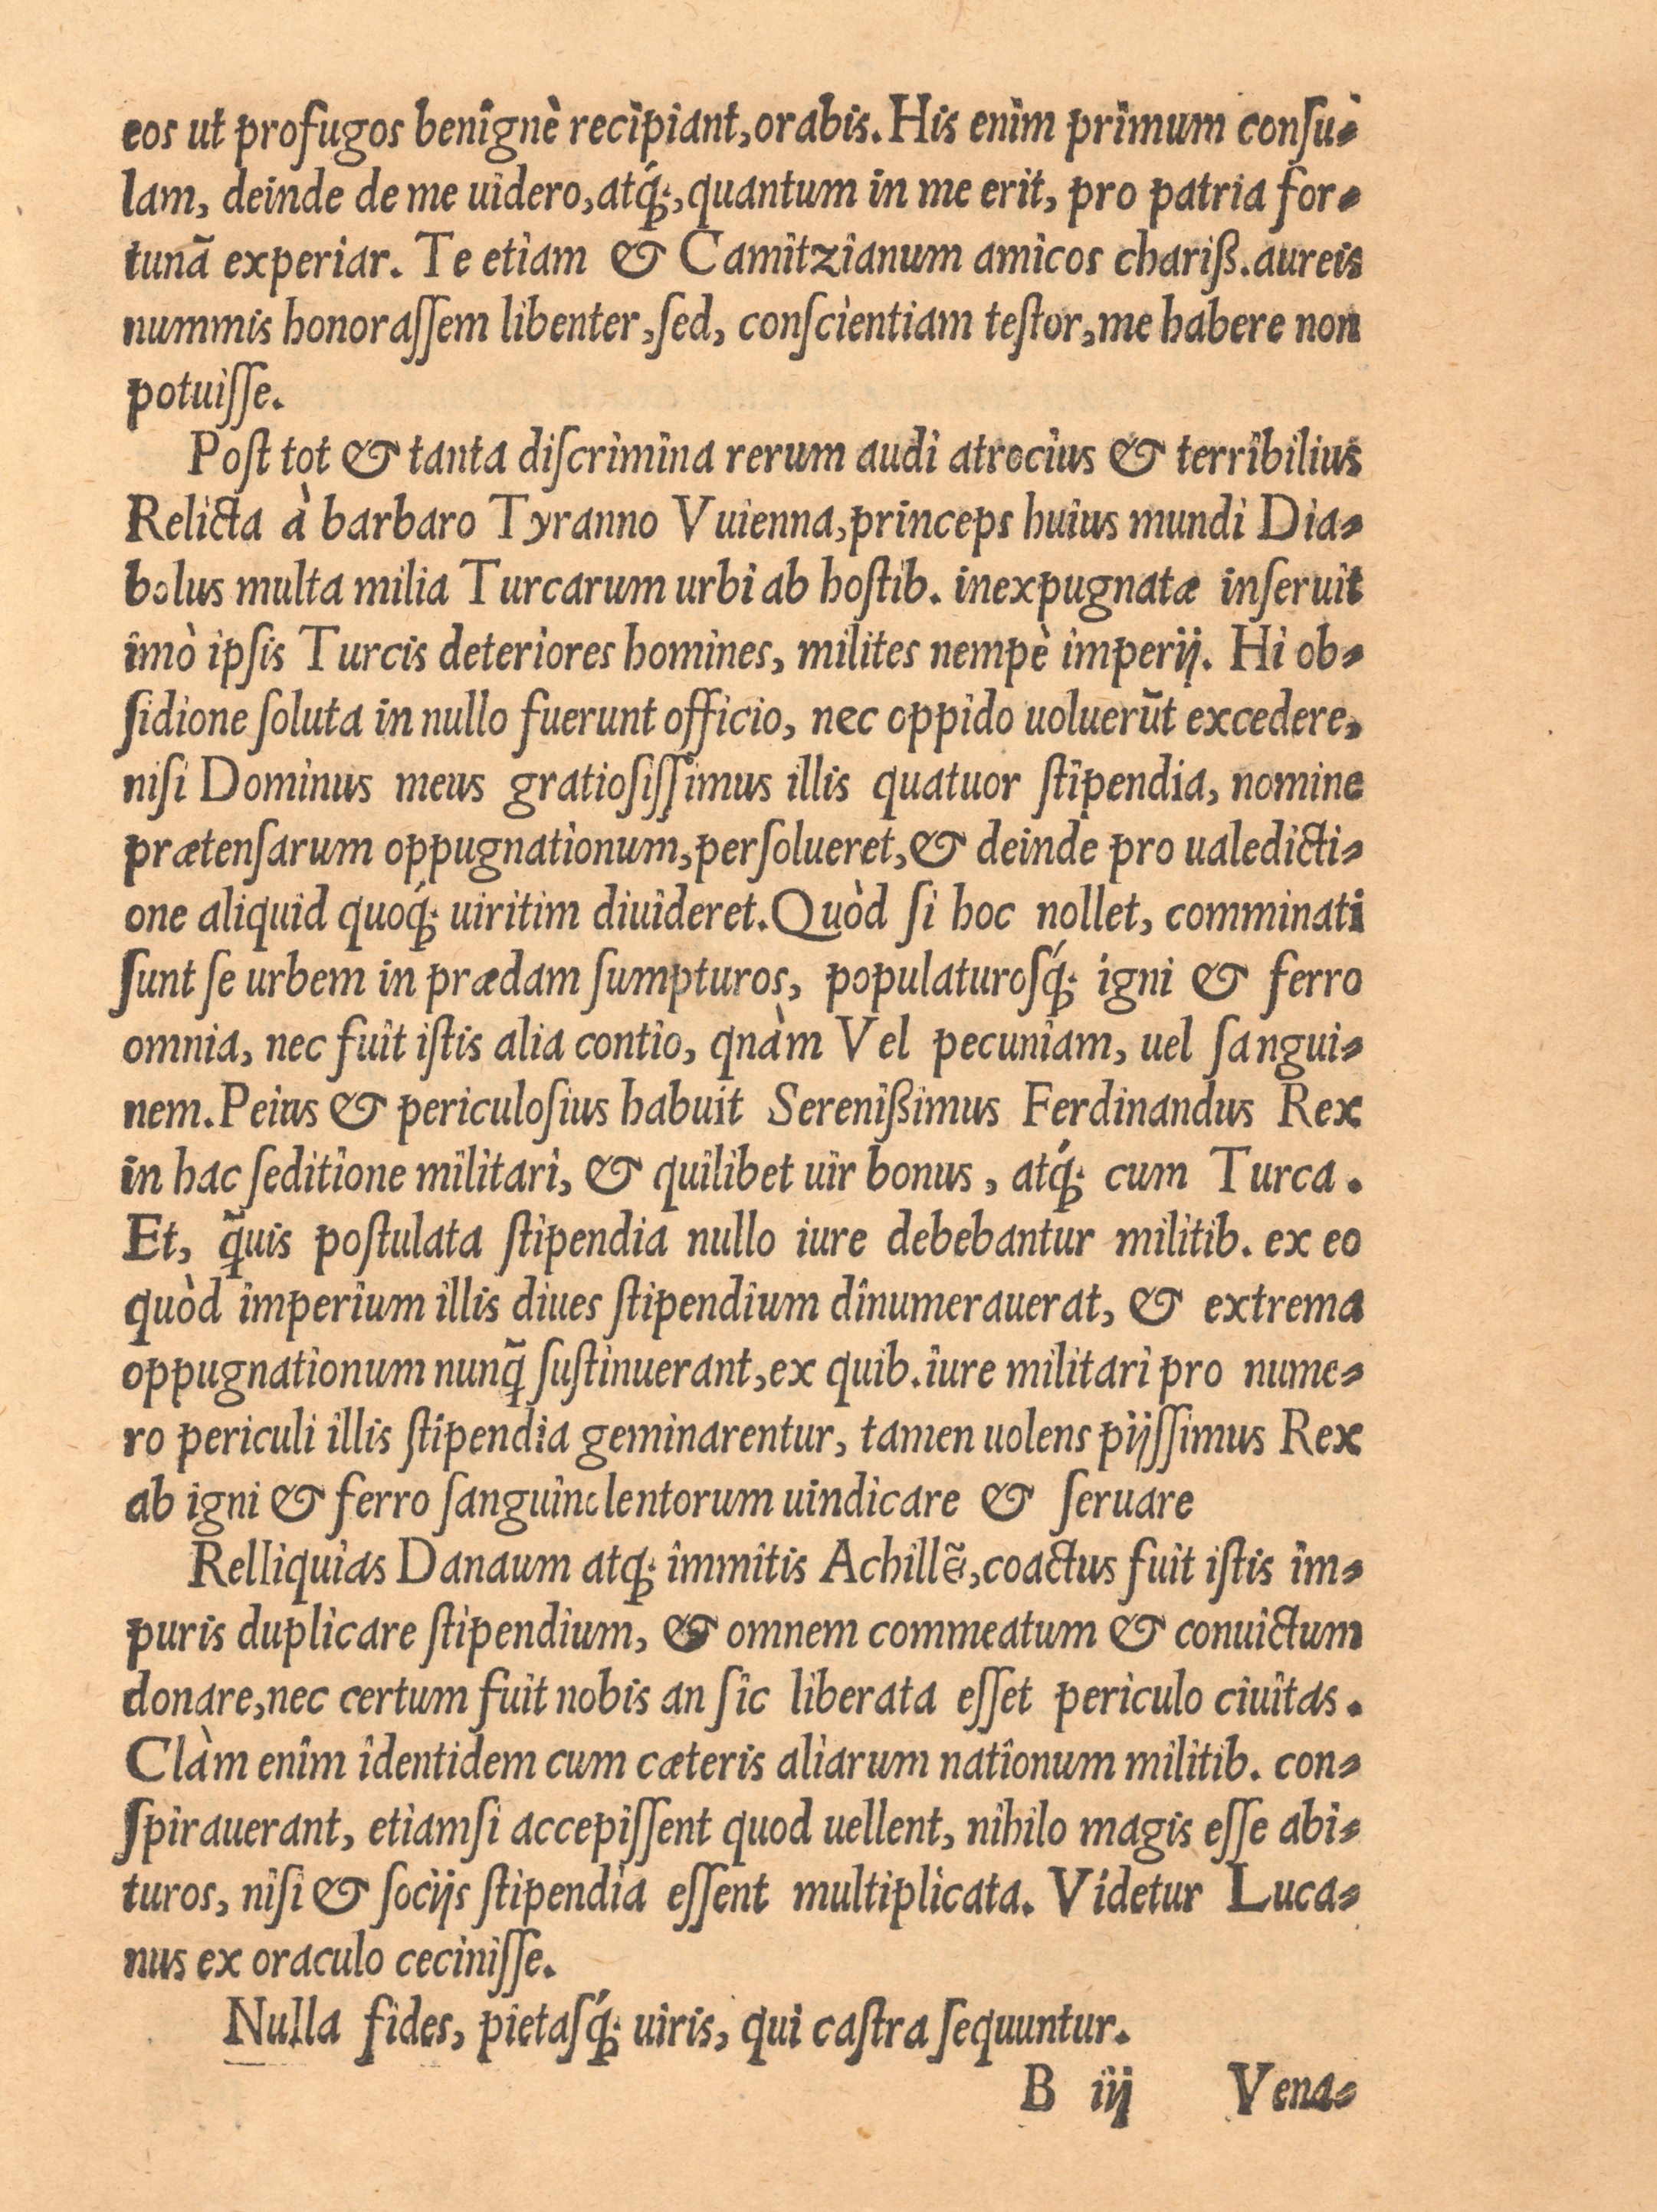 eos ut profugos benignè recipiant,orabis. His enim primum conſu-
lam, deinde de me uidero,atq́;,quantum in me erit, pro patria for-
tunã experiar. Te etiam & Camitzianum amicos chariß.aureis
nummis honoraſſem libenter,ſed, conſcientiam teſtor,me habere non
potuiſſe.
Poſt tot & tanta diſcrimina rerum audi atrocius & terribilius
Relicta à barbaro Tyranno Vuienna,princeps huius mundi Dia-
bolus multa milia Turcarum urbi ab hoſtib. inexpugnatæ inſeruit
imò ipſis Turcis deteriores homines, milites nempè imperij. Hi ob-
ſidione ſoluta in nullo fuerunt officio, nec oppido uoluerũt excedere,
niſi Dominus meus gratioſiſſimus illis quatuor ſtipendia, nomine
prætenſarum oppugnationum,perſolueret,& deinde pro ualedicti-
one aliquid quoq́; uiritim diuideret. Quòd ſi hoc nollet, comminati
ſunt ſe urbem in prædam ſumpturos, populaturoſq́; igni & ferro
omnia, nec fuit iſtis alia contio, qnàm Vel pecuniam, uel ſangui-
nem. Peius & periculoſius habuit Serenißimus Ferdinandus Rex
in hac ſeditione militari, & quilibet uir bonus, atq́; cum Turca.
Et, q̃uis poſtulata ſtipendia nullo iure debebantur militib. ex eo
quòd imperium illis diues ſtipendium dinumerauerat, & extrema
oppugnationum nunq̃ ſuſtinuerant,ex quib.iure militari pro nume-
ro periculi illis ſtipendia geminarentur, tamen uolens pijſſimus Rex
ab igni & ferro ſanguinolentorum uindicare & ſeruare
Relliquias Danaum atq; immitis Achillẽ,coactus fuit iſtis im-
puris duplicare ſtipendium, & omnem commeatum & conuictum
donare,nec certum fuit nobis an ſic liberata eſſet periculo ciuitas.
Clàm enim identidem cum cæteris aliarum nationum militib. con-
ſpirauerant, etiamſi accepiſſent quod uellent, nihilo magis eſſe abi-
turos, niſi & ſocijs ſtipendia eſſent multiplicata. Videtur Luca-
nus ex oraculo ceciniſſe.
Nulla fides, pietaſq́; uiris, qui caſtra ſequuntur.
B iij Vena-